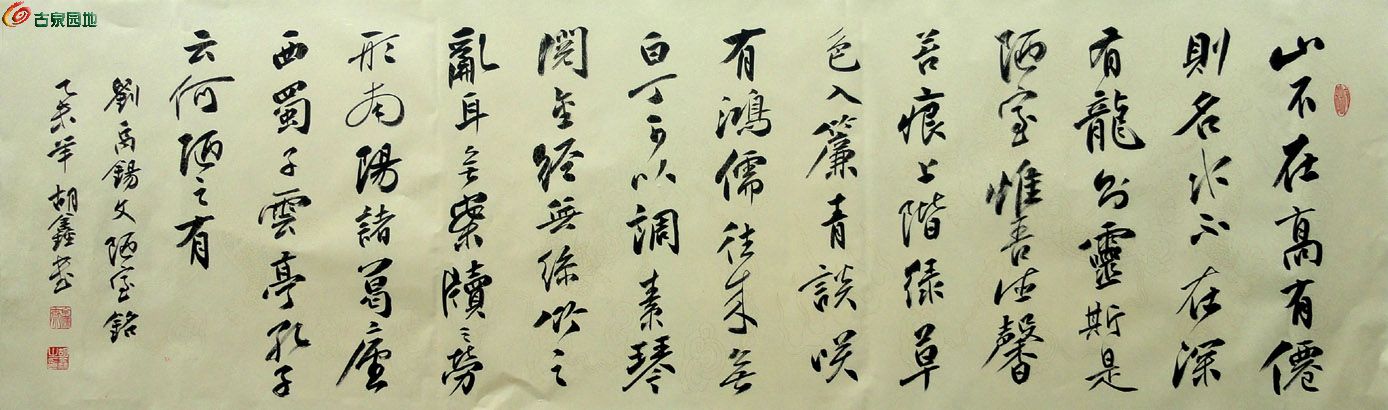 古泉园地
山不在高有僊
則名水不在深
有龍則靈斯是
陋室惟吾德馨
苔痕上階綠草
色入簾青談咲
有鴻儒往来無
白丁可以調素琴
閱金經無絲竹之
亂耳無案牘之勞
形南陽諸葛廬
西蜀子雲亭孔子
云何陋之有
劉禹錫文陋室銘
乙未年胡鑫書